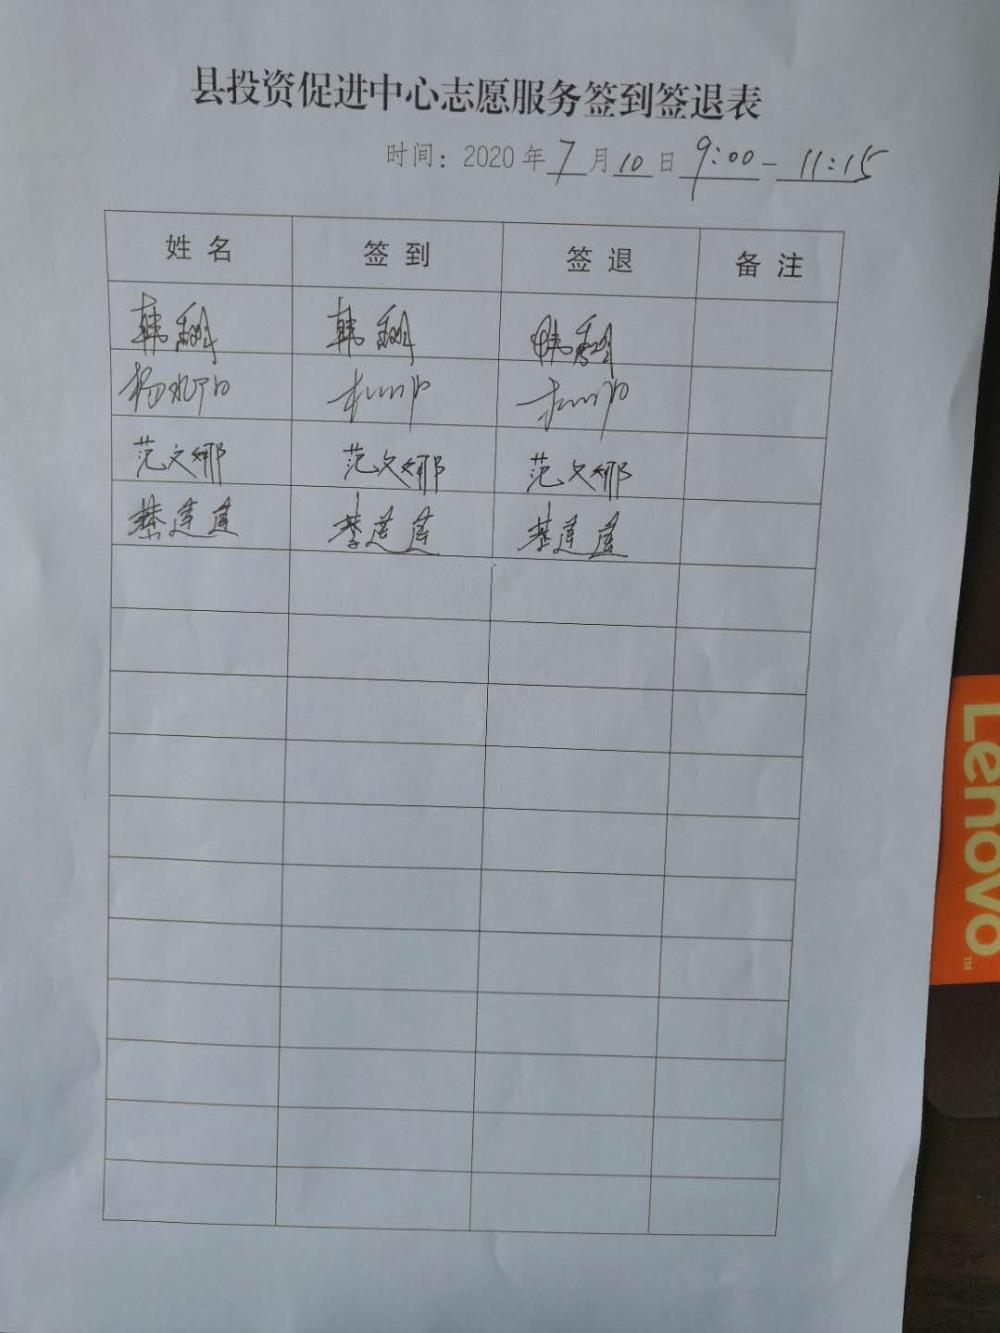 县投资促进中心志愿服务签到签退表
时间：2020年7月10日9:00-11:15
姓名 签到 签退 备注
韩 韩 韩
杨
范文娜 范文娜 范文娜
莲莲 莲莲 莲莲
Lenovo
TM